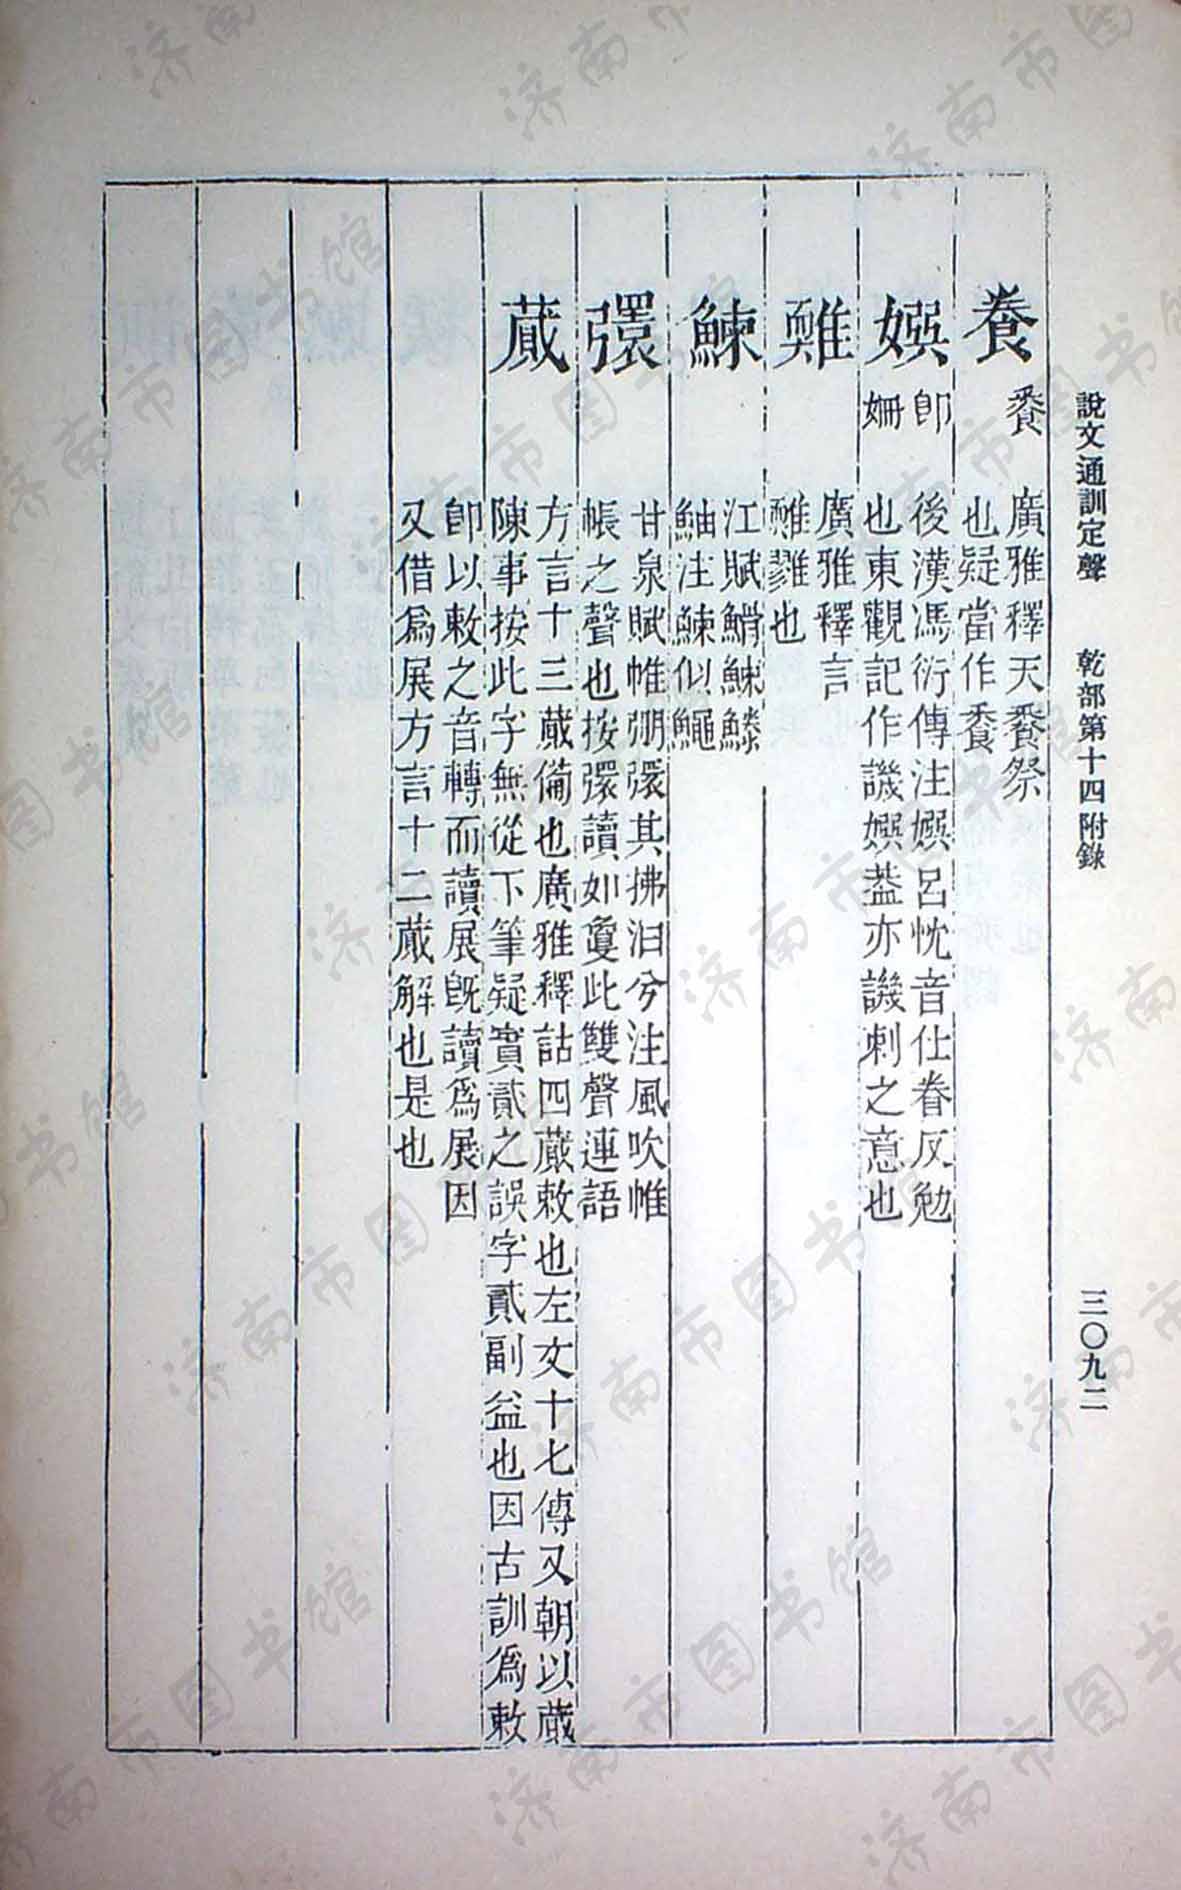 說文通訓定聲 乾部第十四附錄 三〇九二
餋 䬳 廣雅釋天䬳祭
也疑當作餋
嫇 卽姍 後漢馮衍傳注嫇呂忱音仕眷反勉
也東觀記作譏嫇葢亦譏刺之意也
廣雅釋言
也
鰊 江賦鰊
鮋注鰊似鱦
彋 甘泉賦帷弸彋其拂汨兮注風吹帷
帳之聲也按彋讀如瓊此雙聲連語
蕆 方言十三蕆備也廣雅釋詁四蕆敕也左文十七傳又朝以蕆
陳事按此字無從下筆疑實貳之誤字貳副益也因古訓爲敕
卽以敕之音轉而讀展旣讀爲展因
又借爲展方言十二蕆解也是也
济南市图书馆